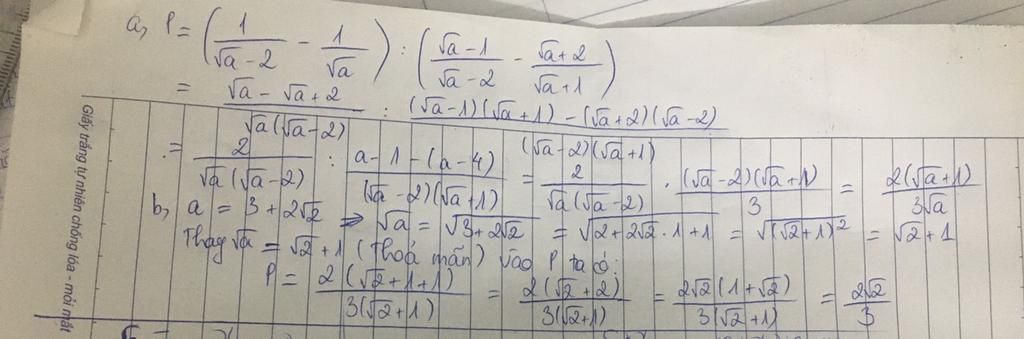 a, P = (1/(√a-2) - 1/√a) : ((√a-1)/(√a-2) - (√a+2)/(√a+1))
= (√a - √a + 2)/(√a(√a-2)) : ((√a-1)(√a+1) - (√a+2)(√a-2))/((√a-2)(√a+1))
= 2/(√a(√a-2)) : (a-1-(a-4))/((√a-2)(√a+1)) = 2/(√a(√a-2)) . ((√a-2)(√a+1))/3 = 2(√a+1)/(3√a)
b, a = 3+2√2 ⇒ √a = √(3+2√2) = √(2+2√2.1+1) = √((√2+1)²) = √2+1
Thay √a = √2+1 (Thoả mãn) vào P ta có:
P = 2(√2+1+1)/(3(√2+1)) = 2(√2+2)/(3(√2+1)) = 2√2(1+√2)/(3(√2+1)) = 2√2/3
Giấy trắng tự nhiên chống lóa - mỏi mắt